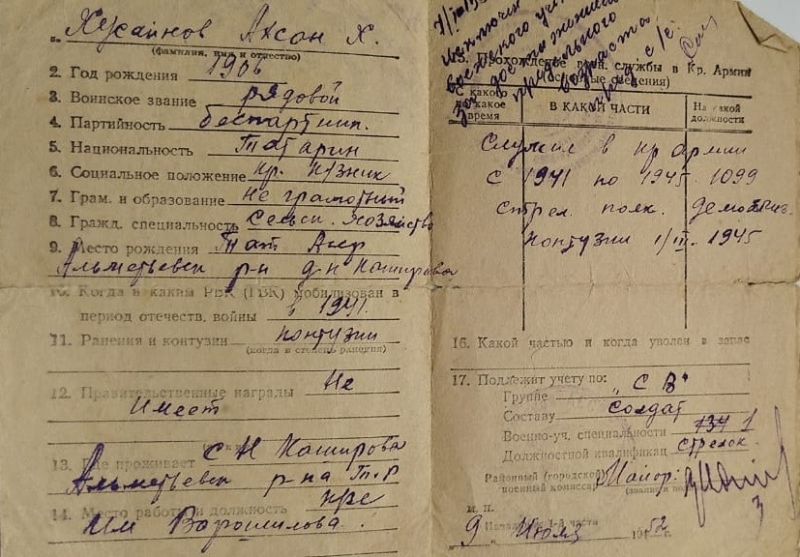 1. Хусаинов Ахсан Х.
(фамилия, имя и отчество)
2. Год рождения 1906
3. Воинское звание рядовой
4. Партийность беспартийн.
5. Национальность Татарин
6. Социальное положение кр.
7. Грам. и образование не грамотный
8. Гражд. специальность Сельск. хозяйство
9. Место рождения Тат
Альметьевск р-н
10. Когда и каким РВК (ГВК) мобилизован в
период отечеств. войны в 1941.
11. Ранения и контузии контузии
(когда и степень ранения)
12. Правительственные награды Не
имеет
13. Где проживает
Альметьевск р-на
14. Место работы и должность
Им Ворошилова.
Исключен
воинского
за достижением
предельного
возраста
15. Прохождение службы в Кр. Армии
В КАКОЙ ЧАСТИ
На какой
должности
время
Служил в кр армии
с 1941 по 1945. 1099
стрел. полк.
контузии 1/III - 1945
16. Какой частью и когда уволен в запас
17. Подлежит учету по:
Группе „СВ"
Составу солдат
Военно-уч. специальности 134 1
Должностной квалификац стрелок.
Районный (городской)
военный комиссар Майор:
М. П.
1-й части
9 Июля 1952